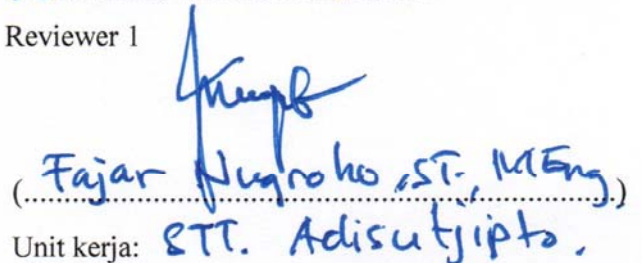 Reviewer 1
(Fajar Nugroho, ST., M.Eng)
Unit kerja: STT. Adisutjipto.